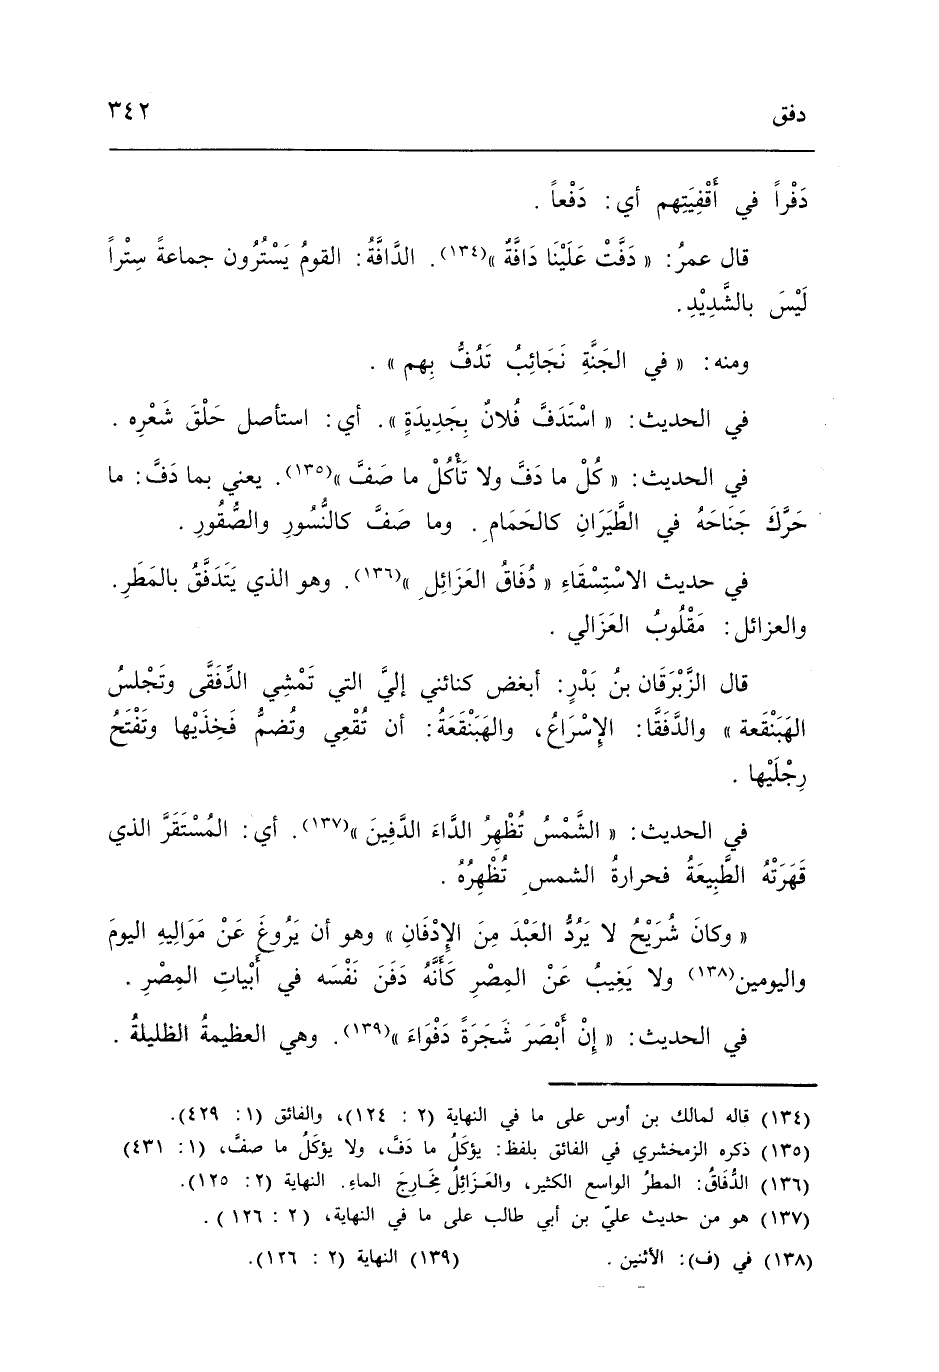 دفق ٣٤٢
دَفْراً في أَقْفِيَتِهم أي: دَفْعاً .
قال عمرُ: « دَفَّتْ عَلَيْنَا دَافَّةٌ »(١٣٤). الدَّافَّةُ: القومُ يَسْتُرُون جماعةً سِتْراً
لَيْسَ بالشَّدِيْدِ.
ومنه: « في الجَنَّةِ نَجَائِبُ تَدُفُّ بِهم » .
في الحديث: « اسْتَدَفَّ فُلانٌ بِجَدِيدَةٍ ». أي: استأصل حَلْقَ شَعْرِه .
في الحديث: « كُلْ ما دَفَّ ولا تَأْكُلْ ما صَفَّ »(١٣٥). يعني بما دَفَّ: ما
حَرَّكَ جَنَاحَهُ في الطَّيَرَانِ كالحَمَامِ . وما صَفَّ كالنُّسُورِ والصُّقُورِ .
في حديث الاسْتِسْقَاءِ « دُفَاقُ العَزَائِلِ »(١٣٦). وهو الذي يَتَدَفَّقُ بالمَطَرِ.
والعزائل: مَقْلُوبُ العَزَالي .
قال الزَّبْرَقَان بنُ بَدْرٍ: أبغض كنائني إليَّ التي تَمْشِي الدِّفَقَّى وتَجْلسُ
الهَبَنْقَعة » والدَّفَقَّا: الإِسْرَاعُ، والهَبَنْقَعَةُ: أن تُقْعِي وتُضمُّ فَخِذَيْها وتَفْتَحُ
رِجْلَيْها .
في الحديث: « الشَّمْسُ تُظْهِرُ الدَّاءَ الدَّفِينَ »(١٣٧). أي: المُسْتَقَرَّ الذي
قَهَرَتْهُ الطَّبِيعَةُ فحرارةُ الشمسِ تُظْهِرُهُ .
« وكانَ شُرَيْحُ لا يَرُدُّ العَبْدَ مِنَ الإِدْفَانِ » وهو أن يَرُوغَ عَنْ مَوَالِيهِ اليومَ
واليومين(١٣٨) ولا يَغِيبُ عَنْ المِصْرِ كَأَنَّهُ دَفَنَ نَفْسَه في أَبْياتِ المِصْرِ .
في الحديث: « إِنْ أَبْصَرَ شَجَرَةً دَفْوَاءَ »(١٣٩). وهي العظيمةُ الظليلةُ .
(١٣٤) قاله لمالك بن أوس على ما في النهاية (٢ : ١٢٤)، والفائق (١ : ٤٢٩).
(١٣٥) ذكره الزمخشري في الفائق بلفظ: يؤكَلُ ما دَفَّ، ولا يؤكَلُ ما صفَّ، (١ : ٤٣١)
(١٣٦) الدُّفَاقُ: المطرُ الواسع الكثير، والعَزائِلُ مَخَارجَ الماءِ. النهاية (٢ : ١٢٥).
(١٣٧) هو من حديث عليّ بن أبي طالب على ما في النهاية، (٢ : ١٢٦) .
(١٣٨) في (ف): الأثنين . (١٣٩) النهاية (٢ : ١٢٦).